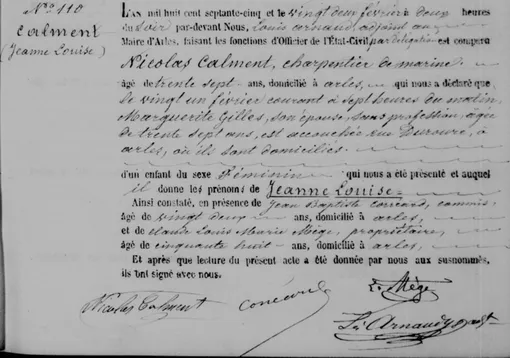 N.º 110
Calment
(Jeanne Louise)
L'AN mil huit cent septante-cinq et le vingt deux février deux heures
du soir par-devant Nous, Louis Arnaud adjoint au
Maire d'Arles, faisant les fonctions d'Officier de l'État-Civil par délégation est comparu
Nicolas Calment, charpentier de marine
âgé de trente sept ans, domicilié à Arles, qui nous a déclaré que
le vingt un février courant à sept heures du matin,
Marguerite Gilles, son épouse, sans profession, âgée
de trente sept ans, est accouchée rue Duroure, à
Arles, où ils sont domiciliés.
d'un enfant du sexe Féminin qui nous a été présenté et auquel
il donne les prénoms de Jeanne Louise
Ainsi constaté, en présence de Jean Baptiste commis
âgé de vingt deux ans, domicilié à Arles,
et de Louis Marie Mège, propriétaire,
âgé de cinquante huit ans, domicilié à Arles,
Et après que lecture du présent acte a été donnée par nous aux susnommés,
ils ont signé avec nous.
Mège
Nicolas Calment
Arnaud